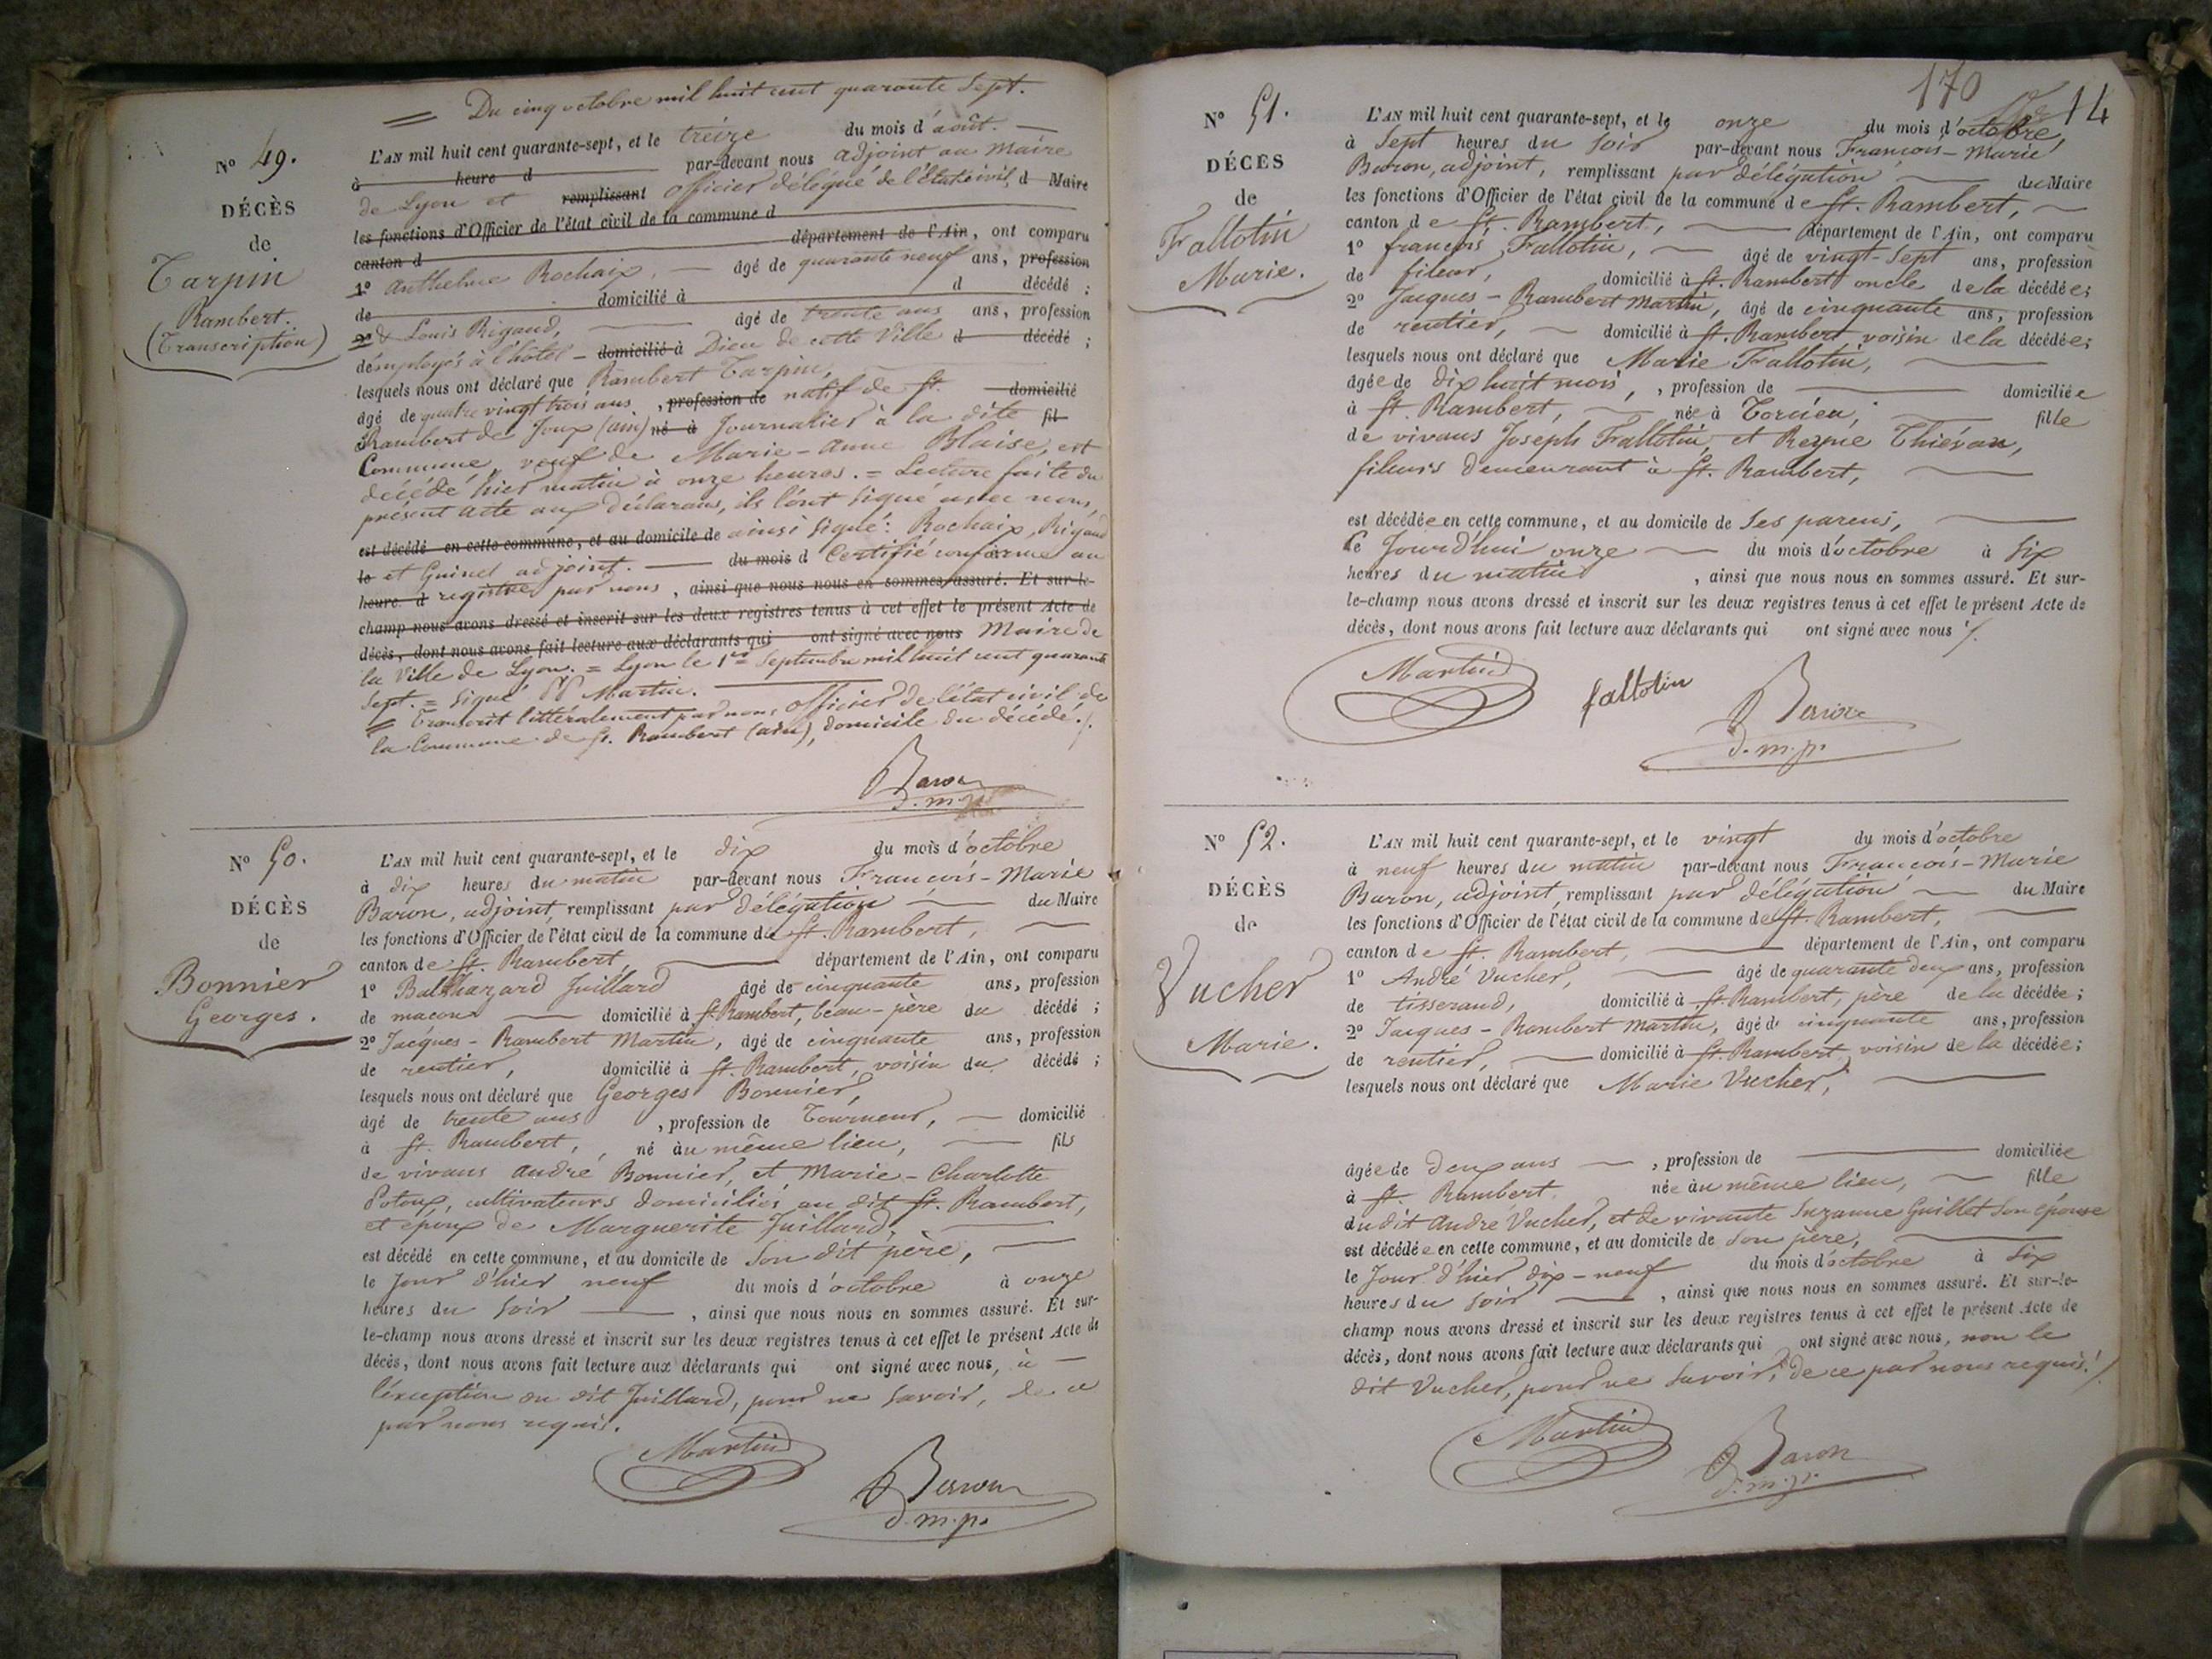 Du cinq octobre mil huit cent quarante Sept.
N° 49.
DÉCÈS
de
Tarpin
Rambert.
(Transcription)
L'AN mil huit cent quarante-sept, et le treize du mois d'août.
à heure d par-devant nous adjoint au Maire
de Lyon et remplissant officier délégué de l'état civil, d Maire
les fonctions d'Officier de l'état civil de la commune d
canton d département de l'Ain, ont comparu
1° Anthelme Rochaix, âgé de quarante neuf ans, profession
de domicilié à d décédé ;
2° & Louis Rigaud, âgé de trente ans ans, profession
d'employés à l'hôtel- domicilié à Dieu de cette Ville d décédé ;
lesquels nous ont déclaré que Rambert Tarpin,
âgé de quatre vingt trois ans, profession de natif de St. domicilié
à Rambert de Joux (ain) né à Journalier à la dite fil
Commune, veuf de Marie-Anne Blaise, est
décédé hier matin à onze heures. = Lecture faite du
présent acte aux déclarans, ils l'ont signé avec nous,
est décédé en cette commune, et au domicile de ainsi signé: Rochaix, Rigaud
le et Guinet adjoint. du mois d Certifié conforme au
heure d registre par nous, ainsi que nous nous en sommes assuré. Et sur-le-
champ nous avons dressé et inscrit sur les deux registres tenus à cet effet le présent Acte de
décès, dont nous avons fait lecture aux déclarants qui ont signé avec nous Maire de
la Ville de Lyon. = Lyon le 1er Septembre mil huit cent quarante
Sept. = Signé Martin.
= Transcrit littéralement par nous officier de l'état civil de
la Commune de St. Rambert (ain), domicile du décédé ./.
Baron
d.m.p.
N° 50.
DÉCÈS
de
Bonnier
Georges.
L'AN mil huit cent quarante-sept, et le dix du mois d'octobre
à dix heures du matin par-devant nous François-Marie
Baron, adjoint, remplissant par délégation du Maire
les fonctions d'Officier de l'état civil de la commune de St. Rambert,
canton de St. Rambert, département de l'Ain, ont comparu
1° Balthazard Juillard âgé de cinquante ans, profession
de macon domicilié à St Rambert, beau-père du décédé ;
2° Jacques-Rambert Martin, âgé de cinquante ans, profession
de rentier, domicilié à St. Rambert, voisin du décédé ;
lesquels nous ont déclaré que Georges Bonnier,
âgé de trente ans, profession de Tourneur, domicilié
à St. Rambert, né au même lieu, fils
de vivans andré Bonnier, et Marie-Charlotte
cultivateurs domiciliés au dit St. Rambert,
et époux de Marguerite Juillard,
est décédé en cette commune, et au domicile de Son dit père,
le Jour d'hier neuf du mois d'octobre à onze
heures du Soir, ainsi que nous nous en sommes assuré. Et sur-
le-champ nous avons dressé et inscrit sur les deux registres tenus à cet effet le présent Acte de
décès, dont nous avons fait lecture aux déclarants qui ont signé avec nous, à
l'exception du dit Juillard, pour ne Savoir, de ce
par nous requis.
Martin
Baron
d.m.p.
170
14
N° 51.
DÉCÈS
de
Fallotin
Marie.
L'AN mil huit cent quarante-sept, et le onze du mois d'octobre
à Sept heures du Soir par-devant nous François-Marie
Baron, adjoint, remplissant par délégation du Maire
les fonctions d'Officier de l'état civil de la commune de St. Rambert,
canton de St. Rambert, département de l'Ain, ont comparu
1° françois Fallotin, âgé de vingt-Sept ans, profession
de fileur, domicilié à St. Rambert oncle de la décédée;
2° Jacques-Rambert Martin, âgé de cinquante ans, profession
de rentier, domicilié à St. Rambert, voisin de la décédée;
lesquels nous ont déclaré que Marie Fallotin,
âgée de dix huit mois, profession de domiciliée
à St. Rambert, née à Torcieu, fille
de vivans Joseph Fallotin, et Reyne Thiévan,
fileurs demeurant à St. Rambert,
est décédée en cette commune, et au domicile de Ses parens,
Ce Jourd'hui onze du mois d'octobre à Six
heures du matin, ainsi que nous nous en sommes assuré. Et sur-
le-champ nous avons dressé et inscrit sur les deux registres tenus à cet effet le présent Acte de
décès, dont nous avons fait lecture aux déclarants qui ont signé avec nous ./.
Martin
fallotin
Baron
d.m.p.
N° 52.
DÉCÈS
de
Vucher
Marie.
L'AN mil huit cent quarante-sept, et le vingt du mois d'octobre
à neuf heures du matin par-devant nous François-Marie
Baron, adjoint, remplissant par délégation du Maire
les fonctions d'Officier de l'état civil de la commune de St. Rambert,
canton de St. Rambert, département de l'Ain, ont comparu
1° André Vucher, âgé de quarante deux ans, profession
de tisserand, domicilié à St. Rambert, père de la décédée;
2° Jacques-Rambert Martin, âgé de cinquante ans, profession
de rentier, domicilié à St. Rambert, voisin de la décédée;
lesquels nous ont déclaré que Marie Vucher,
âgée de deux ans, profession de domiciliée
à St. Rambert. née au même lieu, fille
du dit André Vucher, et de vivante Suzanne Guillet Son épouse
est décédée en cette commune, et au domicile de Son père,
le Jour d'hier dix-neuf du mois d'octobre à Six
heures du Soir, ainsi que nous nous en sommes assuré. Et sur-le-
champ nous avons dressé et inscrit sur les deux registres tenus à cet effet le présent Acte de
décès, dont nous avons fait lecture aux déclarants qui ont signé avec nous, non le
dit Vucher, pour ne Savoir, de ce par nous requis ./.
Martin
Baron
d.m.p.